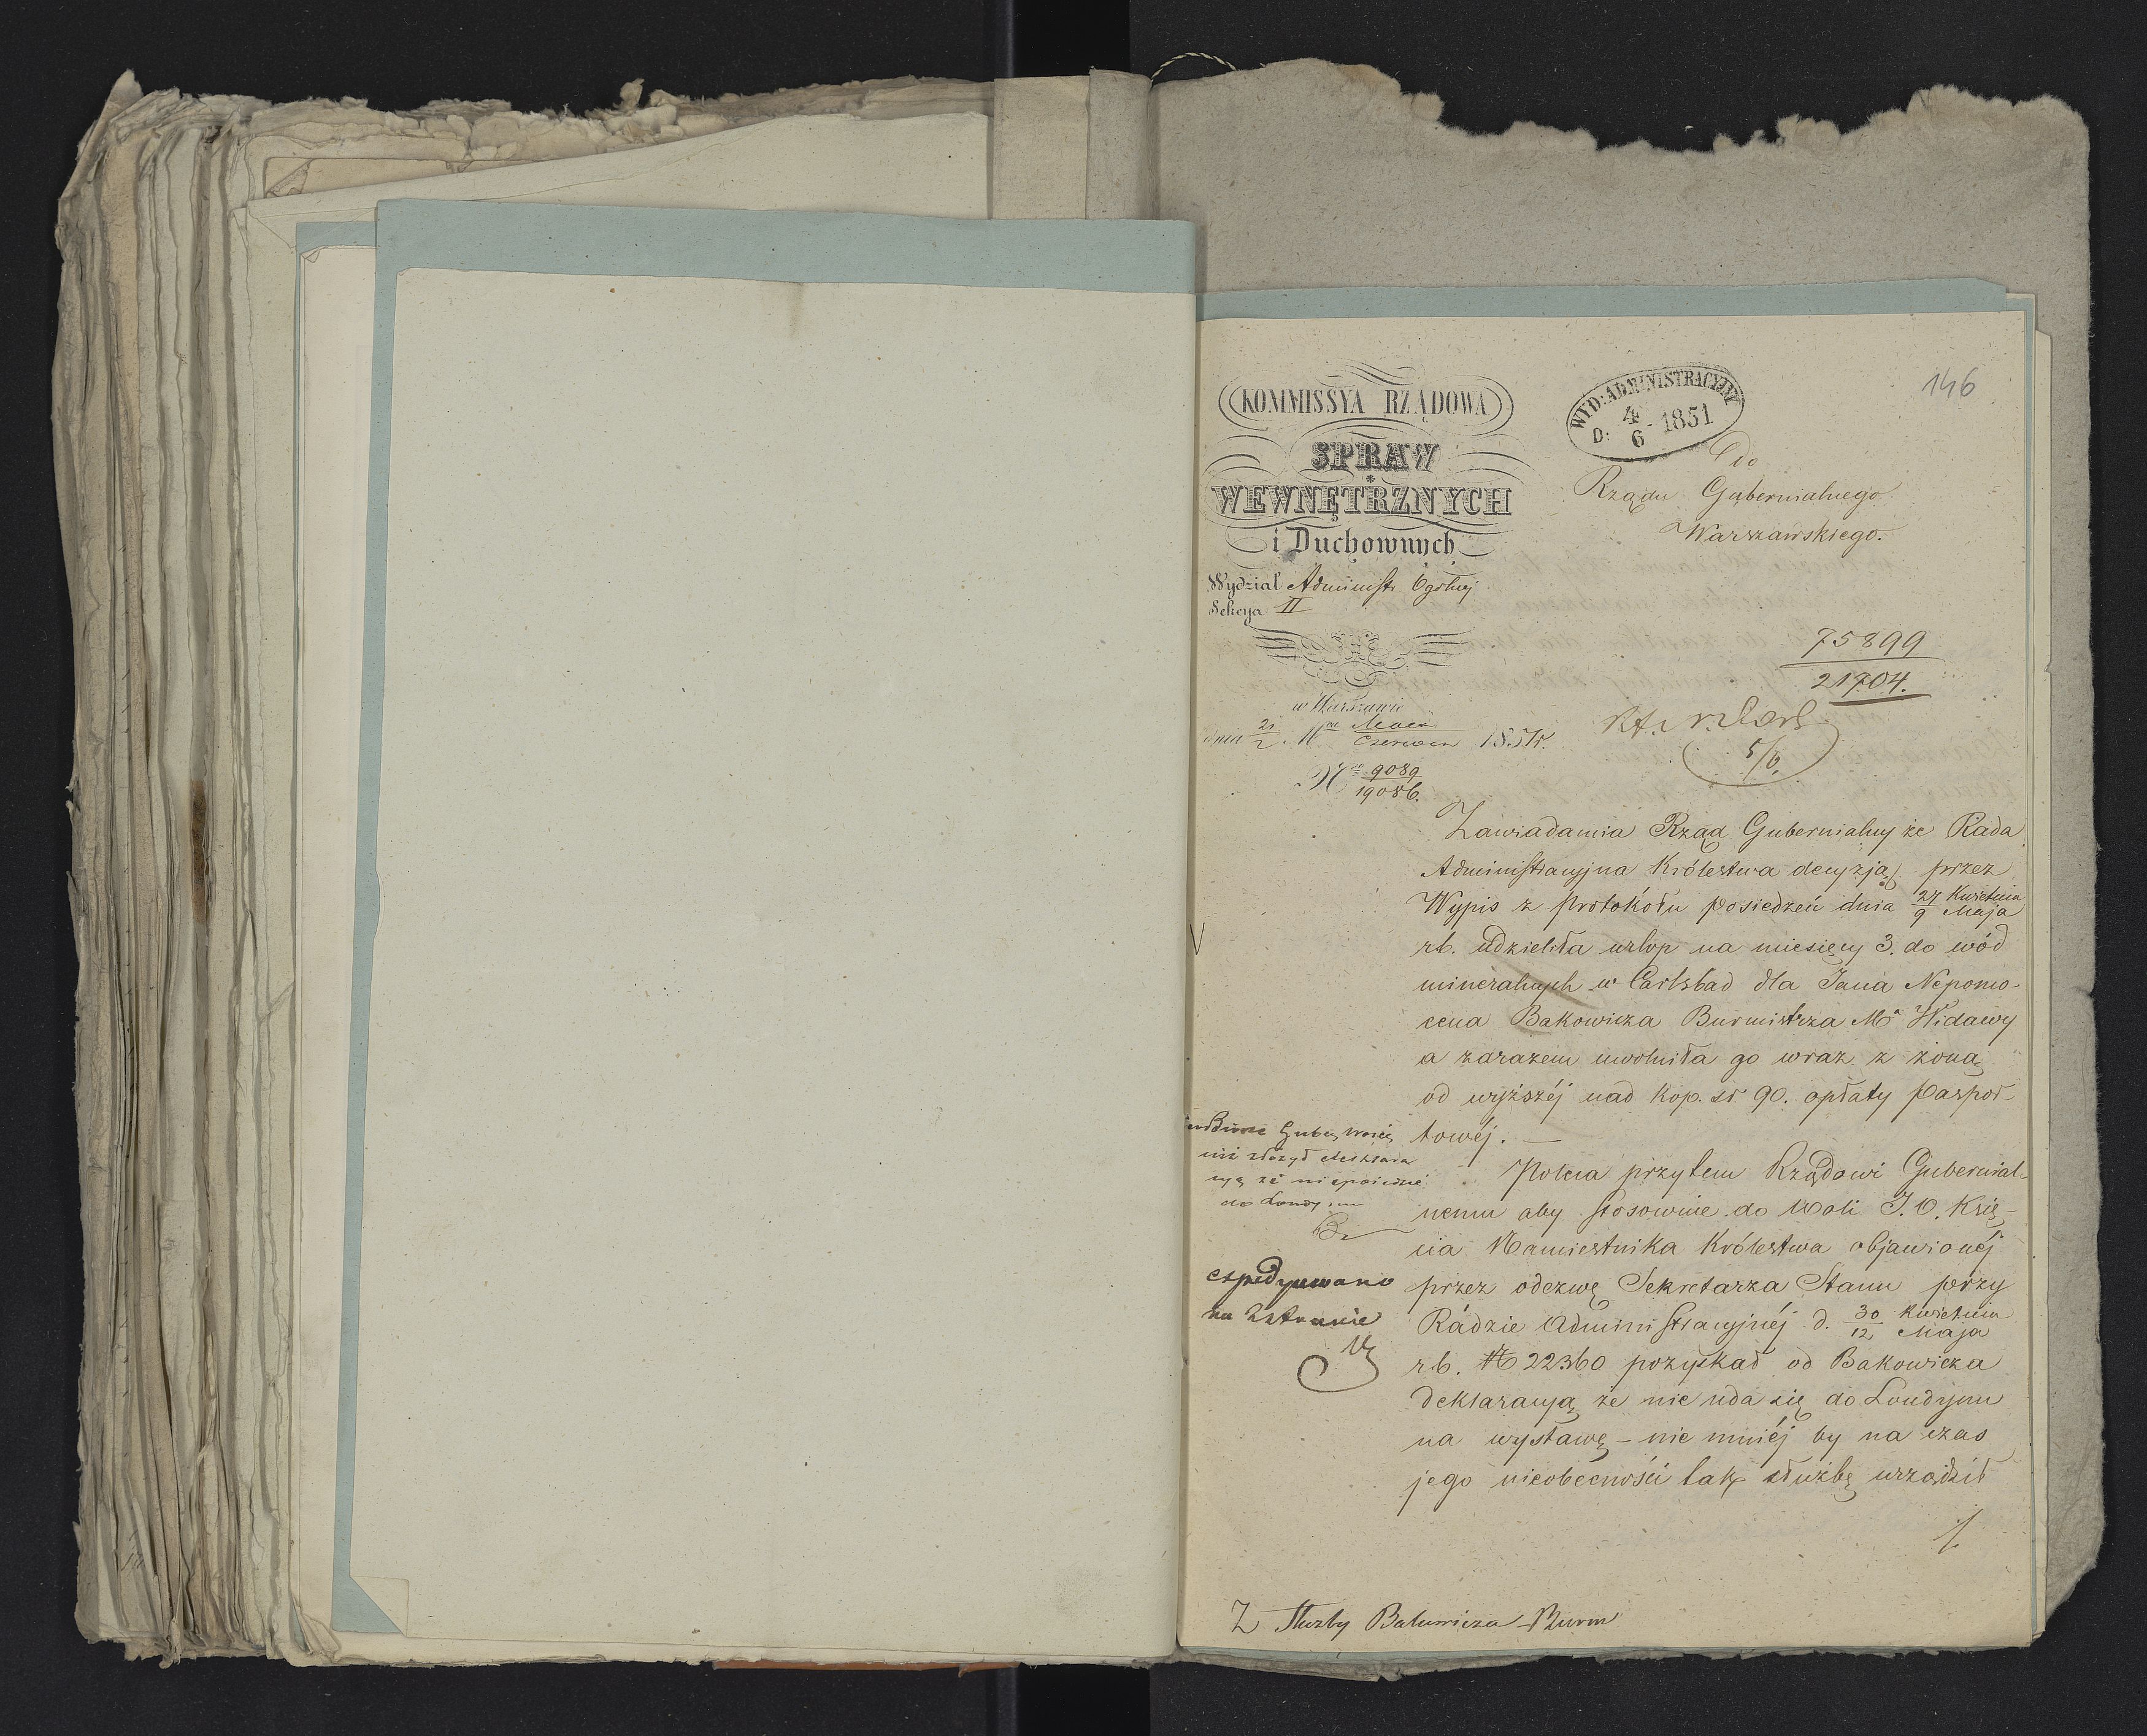 146
KOMMISSYA RZĄDOWA
SPRAW
WEWNĘTRZNYCH
i Duchownych
Wydział Administr. Ogólnej
Sekcya II
WYD: ADMINISTRACYJNY
D: 4/6 - 1851
Do
Rządu Gubernialnego
Warszawskiego.
75899
21704.
w Warszawie
dnia 21/2 Maja/Czerwca 1851r.
5/6.
N 9089/19086.
Zawiadamia Rząd Gubernialny że Rada
Administracyjna Królestwa decyzją przez
Wypis z protokółu posiedzeń dnia 27 Kwietnia/9 Maja
rb. udzieliła urlop na miesięcy 3. do wód
mineralnych w Carlsbad dla Jana Nepomo-
cena Bakowicza Burmistrza Mta Widawy
a zarazem uwolniła go wraz z żoną
od wyższéj nad kop. sr. 90. opłaty paspor-
towéj. —
Poleca przytem Rządowi Gubernial-
nemu aby stosownie do Woli J. O. Księ-
cia Namiestnika Królestwa objawionéj
przez odezwę Sekretarza Stanu przy
Radzie Administracyjnéj d. 30 Kwietnia/12 Maja
rb. N 22360 pozyskał od Bakowicza
deklaracyą że nie uda się do Londynu
na wystawę – nie mniéj by na czas
jego nieobecności tak służbę urządził
niż złożył deklara
cyą że nie pojedzie
do Londynu
expedyowano
na 2 stronie
Z Służby Bakowicza Burm